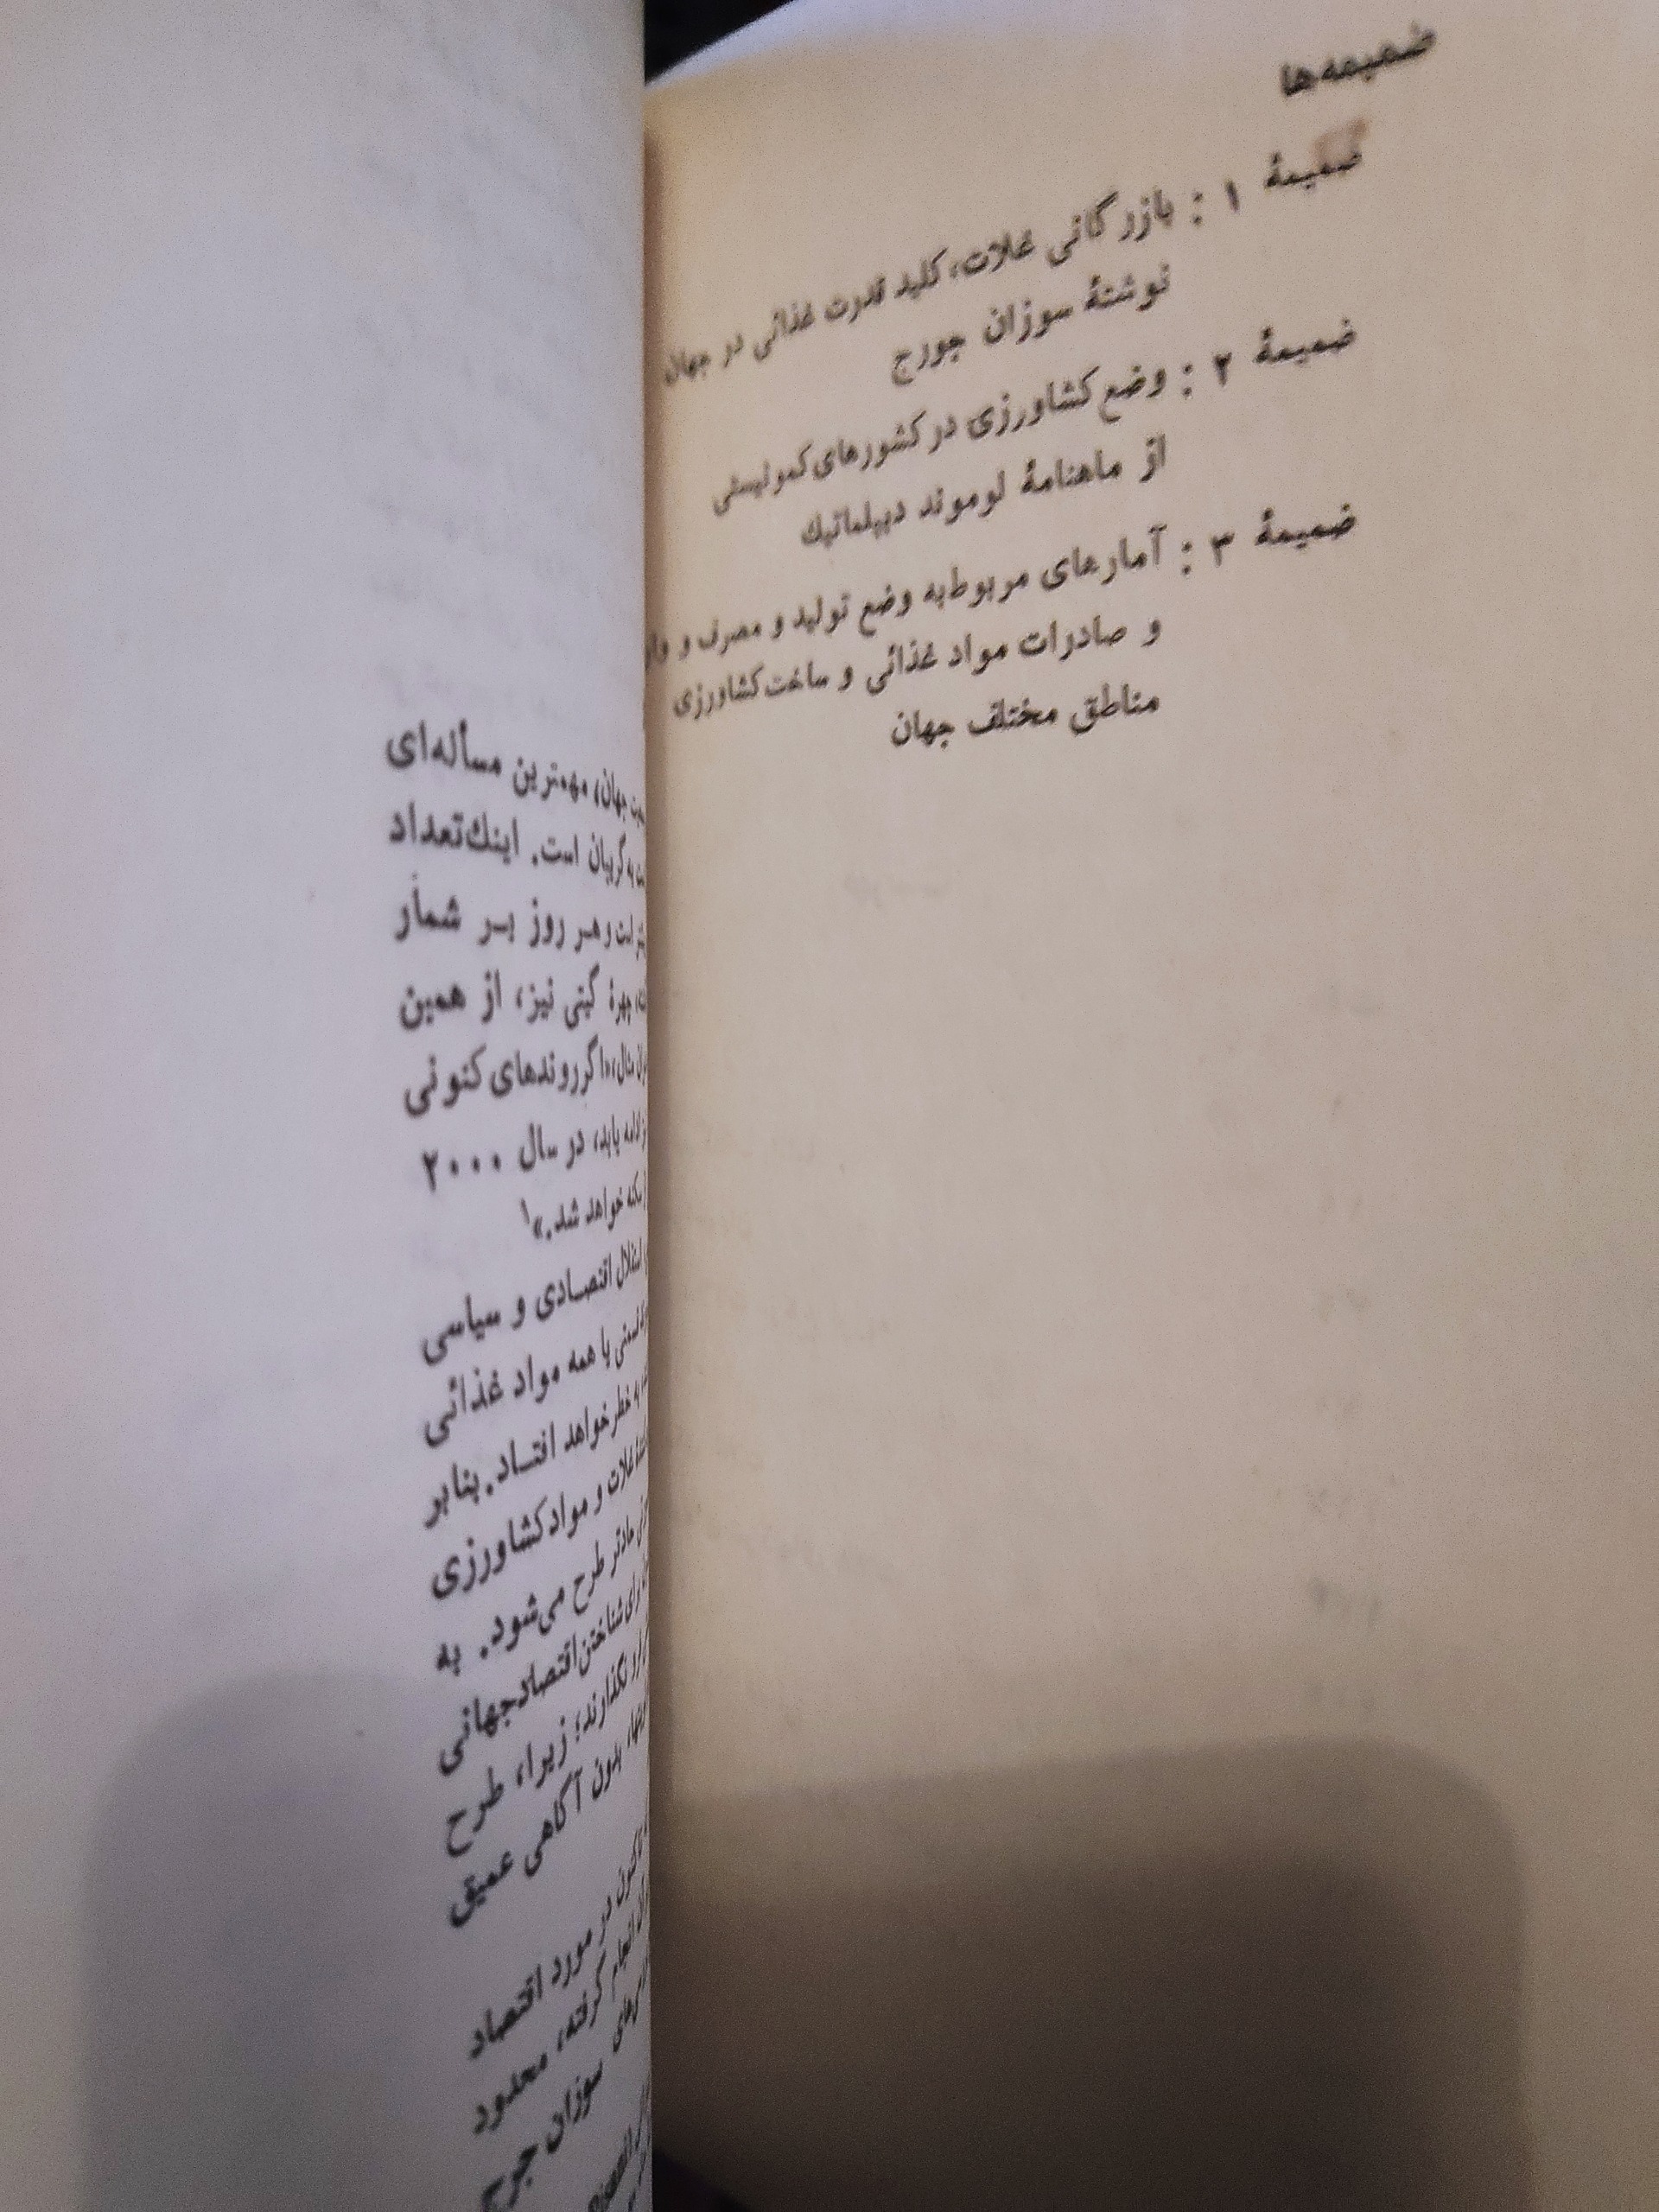 ضمیمه‌ها
ضمیمهٔ ۱ : بازرگانی غلات، کلید قدرت غذائی در جهان
نوشتهٔ سوزان جورج
ضمیمهٔ ۲ : وضع کشاورزی در کشورهای کمونیستی
از ماهنامهٔ لوموند دیپلماتیك
ضمیمهٔ ۳ : آمارهای مربوط‌به وضع تولید و مصرف و
و صادرات مواد غذائی و ساخت کشاورزی
مناطق مختلف جهان
جهان، مهمترین مسأله‌ای
به گریبان است. اینك تعداد
است و هر روز بر شمار
چهرهٔ گیتی نیز، از همین
مثال، «اگر روندهای کنونی
ادامه یابد، در سال ۲۰۰۰
خواهد شد.»۱
استقلال اقتصادی و سیاسی
یا همه مواد غذائی
به خطر خواهد افتاد. بنابر
غلات و مواد کشاورزی
طرح می‌شود. به
برای شناختن اقتصاد جهانی
نگذارند؛ زیرا، طرح
بدون آگاهی عمیق
تاکنون در مورد اقتصاد
انجام گرفته، محدود
سوزان جورج